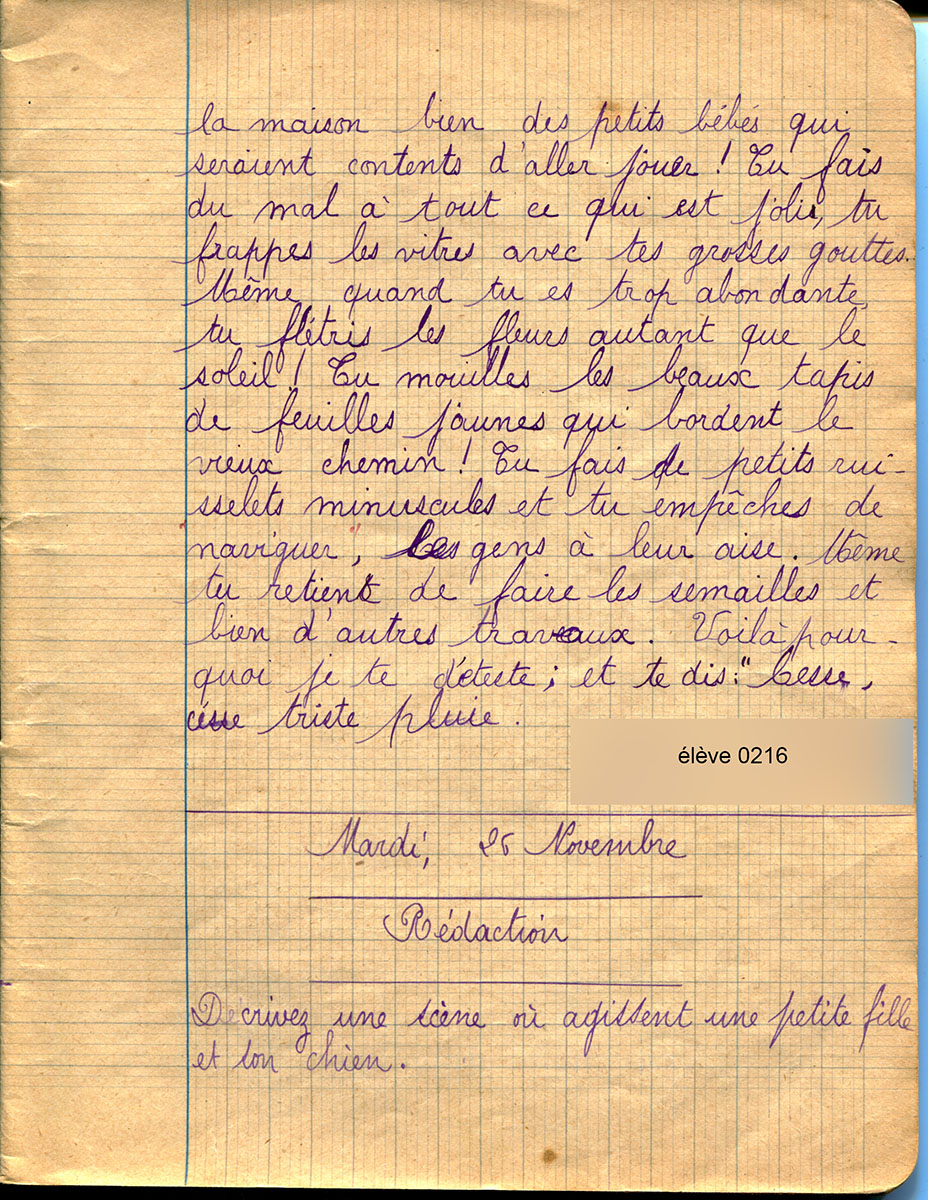 la maison bien des petits bébés qui
seraient contents d'aller jouer ! Tu fais
du mal à tout ce qui est joli, tu
frappes les vitres avec tes grosses gouttes.
Même quand tu es trop abondante,
tu flétris les fleurs autant que le
soleil ! Tu mouilles les beaux tapis
de feuilles jaunes qui bordent le
vieux chemin ! Tu fais de petits rui-
sselets minuscules et tu empêches de
naviguer, les gens à leur aise. Même
tu retient de faire les semailles et
bien d'autres traveaux. Voilà pour-
quoi je te déteste ; et te dis : "Cesse,
cesse triste pluie.
élève 0216
Mardi, 26 Novembre
Rédaction
Décrivez une scène où agissent une petite fille
et son chien.